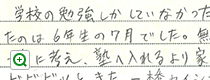 学校の勉強しかしていなかった
たのは6年生の7月でした。無
に考え、塾へ入れるより家